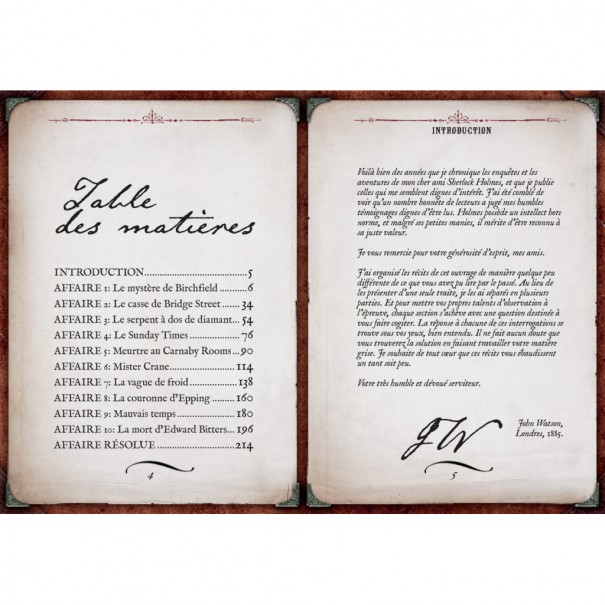 Table
des matières
INTRODUCTION..................................5
AFFAIRE 1: Le mystère de Birchfield ..........6
AFFAIRE 2: Le casse de Bridge Street ...... 34
AFFAIRE 3: Le serpent à dos de diamant... 54
AFFAIRE 4: Le Sunday Times ..................76
AFFAIRE 5: Meurtre au Carnaby Rooms ...90
AFFAIRE 6: Mister Crane....................... 114
AFFAIRE 7: La vague de froid ................ 138
AFFAIRE 8: La couronne d'Epping ........ 160
AFFAIRE 9: Mauvais temps ................... 180
AFFAIRE 10: La mort d'Edward Bitters... 196
AFFAIRE RÉSOLUE ..........................214
4
INTRODUCTION
Voilà bien des années que je chronique les enquêtes et les
aventures de mon cher ami Sherlock Holmes, et que je publie
celles qui me semblent dignes d'intérêt. J'ai été comblé de
voir qu'un nombre honnête de lecteurs a jugé mes humbles
témoignages dignes d'être lus. Holmes possède un intellect hors
norme, et malgré ses petites manies, il mérite d'être reconnu à
sa juste valeur.
Je vous remercie pour votre générosité d'esprit, mes amis.
J'ai organisé les récits de cet ouvrage de manière quelque peu
différente de ce que vous avez pu lire par le passé. Au lieu de
les présenter d'une seule traite, je les ai séparés en plusieurs
parties. Et pour mettre vos propres talents d'observation à
l'épreuve, chaque section s'achève avec une question destinée à
vous faire cogiter. La réponse à chacune de ces interrogations se
trouve sous vos yeux, bien entendu. Il ne fait aucun doute que
vous trouverez la solution en faisant travailler votre matière
grise. Je souhaite de tout cœur que ces récits vous ébaudissent
un tant soit peu.
Votre très humble et dévoué serviteur.
JW
John Watson,
Londres, 1885.
5